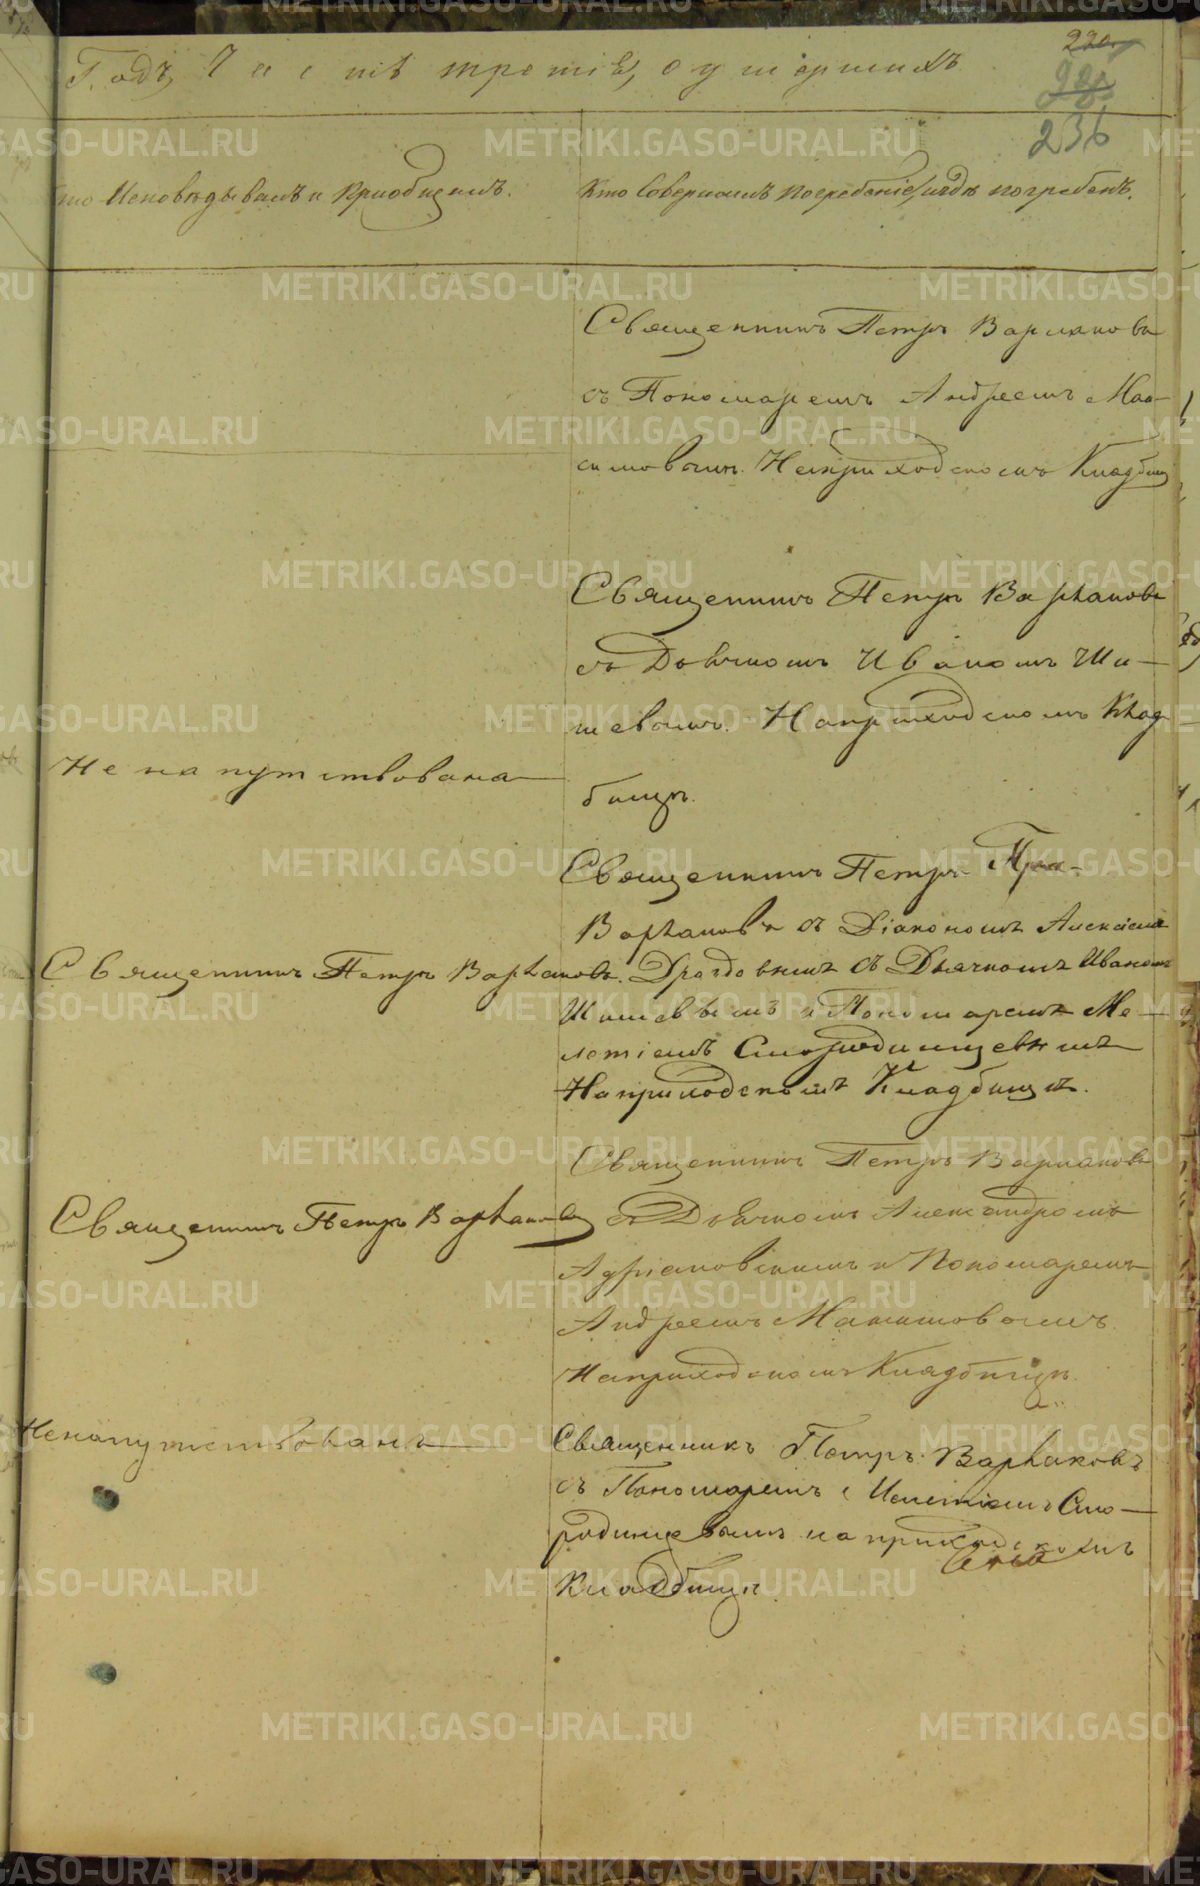 Годъ, Часть третія, о умершихъ.
220
236
Кто Исповѣдывалъ и Приобщалъ.
Кто Совершалъ погребеніе, и гдѣ погребенъ.
Священникъ Петръ Варлаковъ
съ Пономаремъ Андреемъ Мак-
симовымъ. На приходскомъ Кладбищѣ
Священникъ Петръ Варлаковъ
съ Дьячкомъ Иваномъ Ши-
шевымъ. На приходскомъ Клад-
Не напутствована
бищѣ.
Священникъ Петръ
Варлаковъ съ Діакономъ Алексіемъ
Священникъ Петръ Варлаковъ.
Дроздовымъ съ Дьячкомъ Иваномъ
Шишевымъ и Пономаремъ Ме-
летіемъ Смородинцевымъ
На приходскомъ Кладбищѣ.
Священникъ Петръ Варлаковъ
Священникъ Петръ Варлаковъ
съ Дьячкомъ Александромъ
Адріановскимъ и Пономаремъ
Андреемъ Максимовымъ
На приходскомъ Кладбищѣ.
Ненапутствованъ
Священникъ Петръ Варлаковъ
съ Пономаремъ Мелетіемъ Смо-
родинцевымъ на приходскомъ
Кладбищѣ.
METRIKI.GASO-URAL.RU